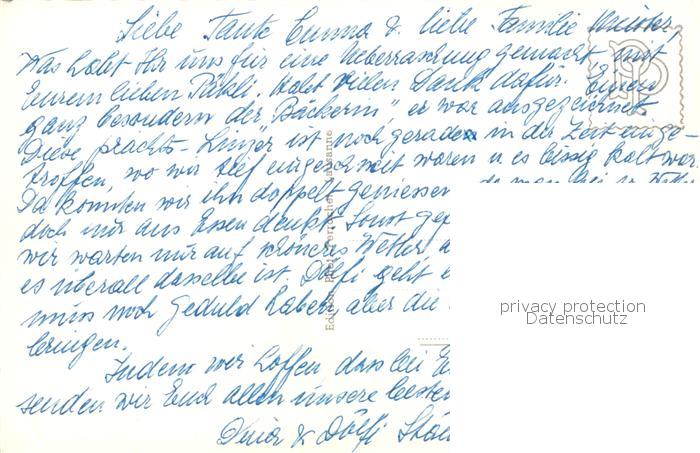 Liebe Tante Emma & liebe Familie
Was habt Ihr uns für eine Ueberraschung gemacht mit
Eurem lieben Päkli. Habt vielen Dank dafür. Einen
ganz besondern der "Bäckerin", er war ausgezeichnet
Diese prachts- ist noch gerade in der Zeit einge-
troffen, wo wir tief eingeschneit waren u es eissig kalt war.
Da konnten wir ihn doppelt geniessen da man bei
doch nur ans Essen denkt. Sonst
wir warten nur auf schöneres Wetter
es überall dasselbe ist. Dölfi geht
muss noch Geduld haben, aber die
bringen.
Indem wir hoffen dass bei
senden wir Euch allen unsere besten
& Dölfi
Edition Lausanne
privacy protection
Datenschutz